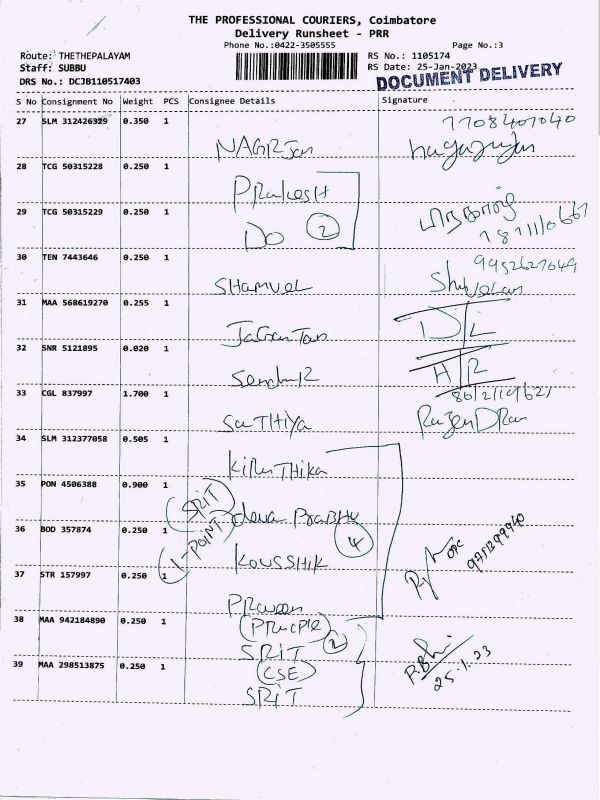 THE PROFESSIONAL COURIERS, Coimbatore
Delivery Runsheet - PRR
Phone No.:0422-3505555 Page No.:3
Route: THETHEPALAYAM RS No.: 1105174
Staff: SUBBU RS Date: 25-Jan-2023
DRS No.: DCJB110517403 DOCUMENT DELIVERY
S No Consignment No Weight PCS Consignee Details Signature
27 SLM 312426329 0.350 1
7708407040
NAGRJan
28 TCG 50315228 0.250 1
PRakesH
29 TCG 50315229 0.250 1
Do 2
30 TEN 7443646 0.250 1
9952627049
SHAMUEL
31 MAA 568619270 0.255 1
D/L
32 SNR 5121895 0.020 1
H/R
33 CGL 837997 1.700 1
SaTHIYA RajenDRan
34 SLM 312377058 0.505 1
KiruTHika
35 PON 4506388 0.900 1
(SRIT) Deva PRaBHu
36 BOD 357874 0.250 1
(1-POINT) 4
KOUSSHIK
37 STR 157997 0.250 1
PRaveen
38 MAA 942184890 0.250 1
2
SRIT
39 MAA 298513875 0.250 1
(CSE) 25.1.23
SRIT